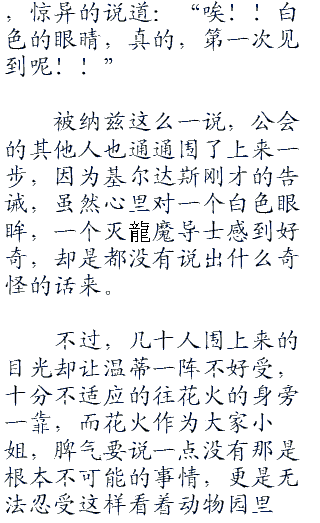 ，惊异的说道：“唉！！白
色的眼睛，真的，第一次见
到呢！！”
被纳兹这么一说，公会
的其他人也通通围了上来一
步，因为基尔达斯刚才的告
诫，虽然心里对一个白色眼
眸，一个灭龍魔导士感到好
奇，却是都没有说出什么奇
怪的话来。
不过，几十人围上来的
目光却让温蒂一阵不好受，
十分不适应的往花火的身旁
一靠，而花火作为大家小
姐，脾气要说一点没有那是
根本不可能的事情，更是无
法忍受这样看着动物园里